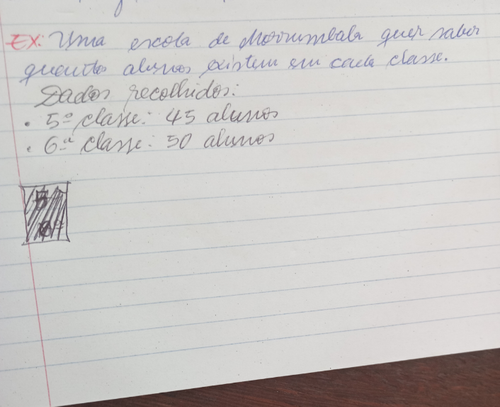 Ex: Uma escola de Morrumbala quer saber
quantos alunos existem em cada classe.
Dados recolhidos:
• 5ª classe: 45 alunos
• 6ª classe: 50 alunos